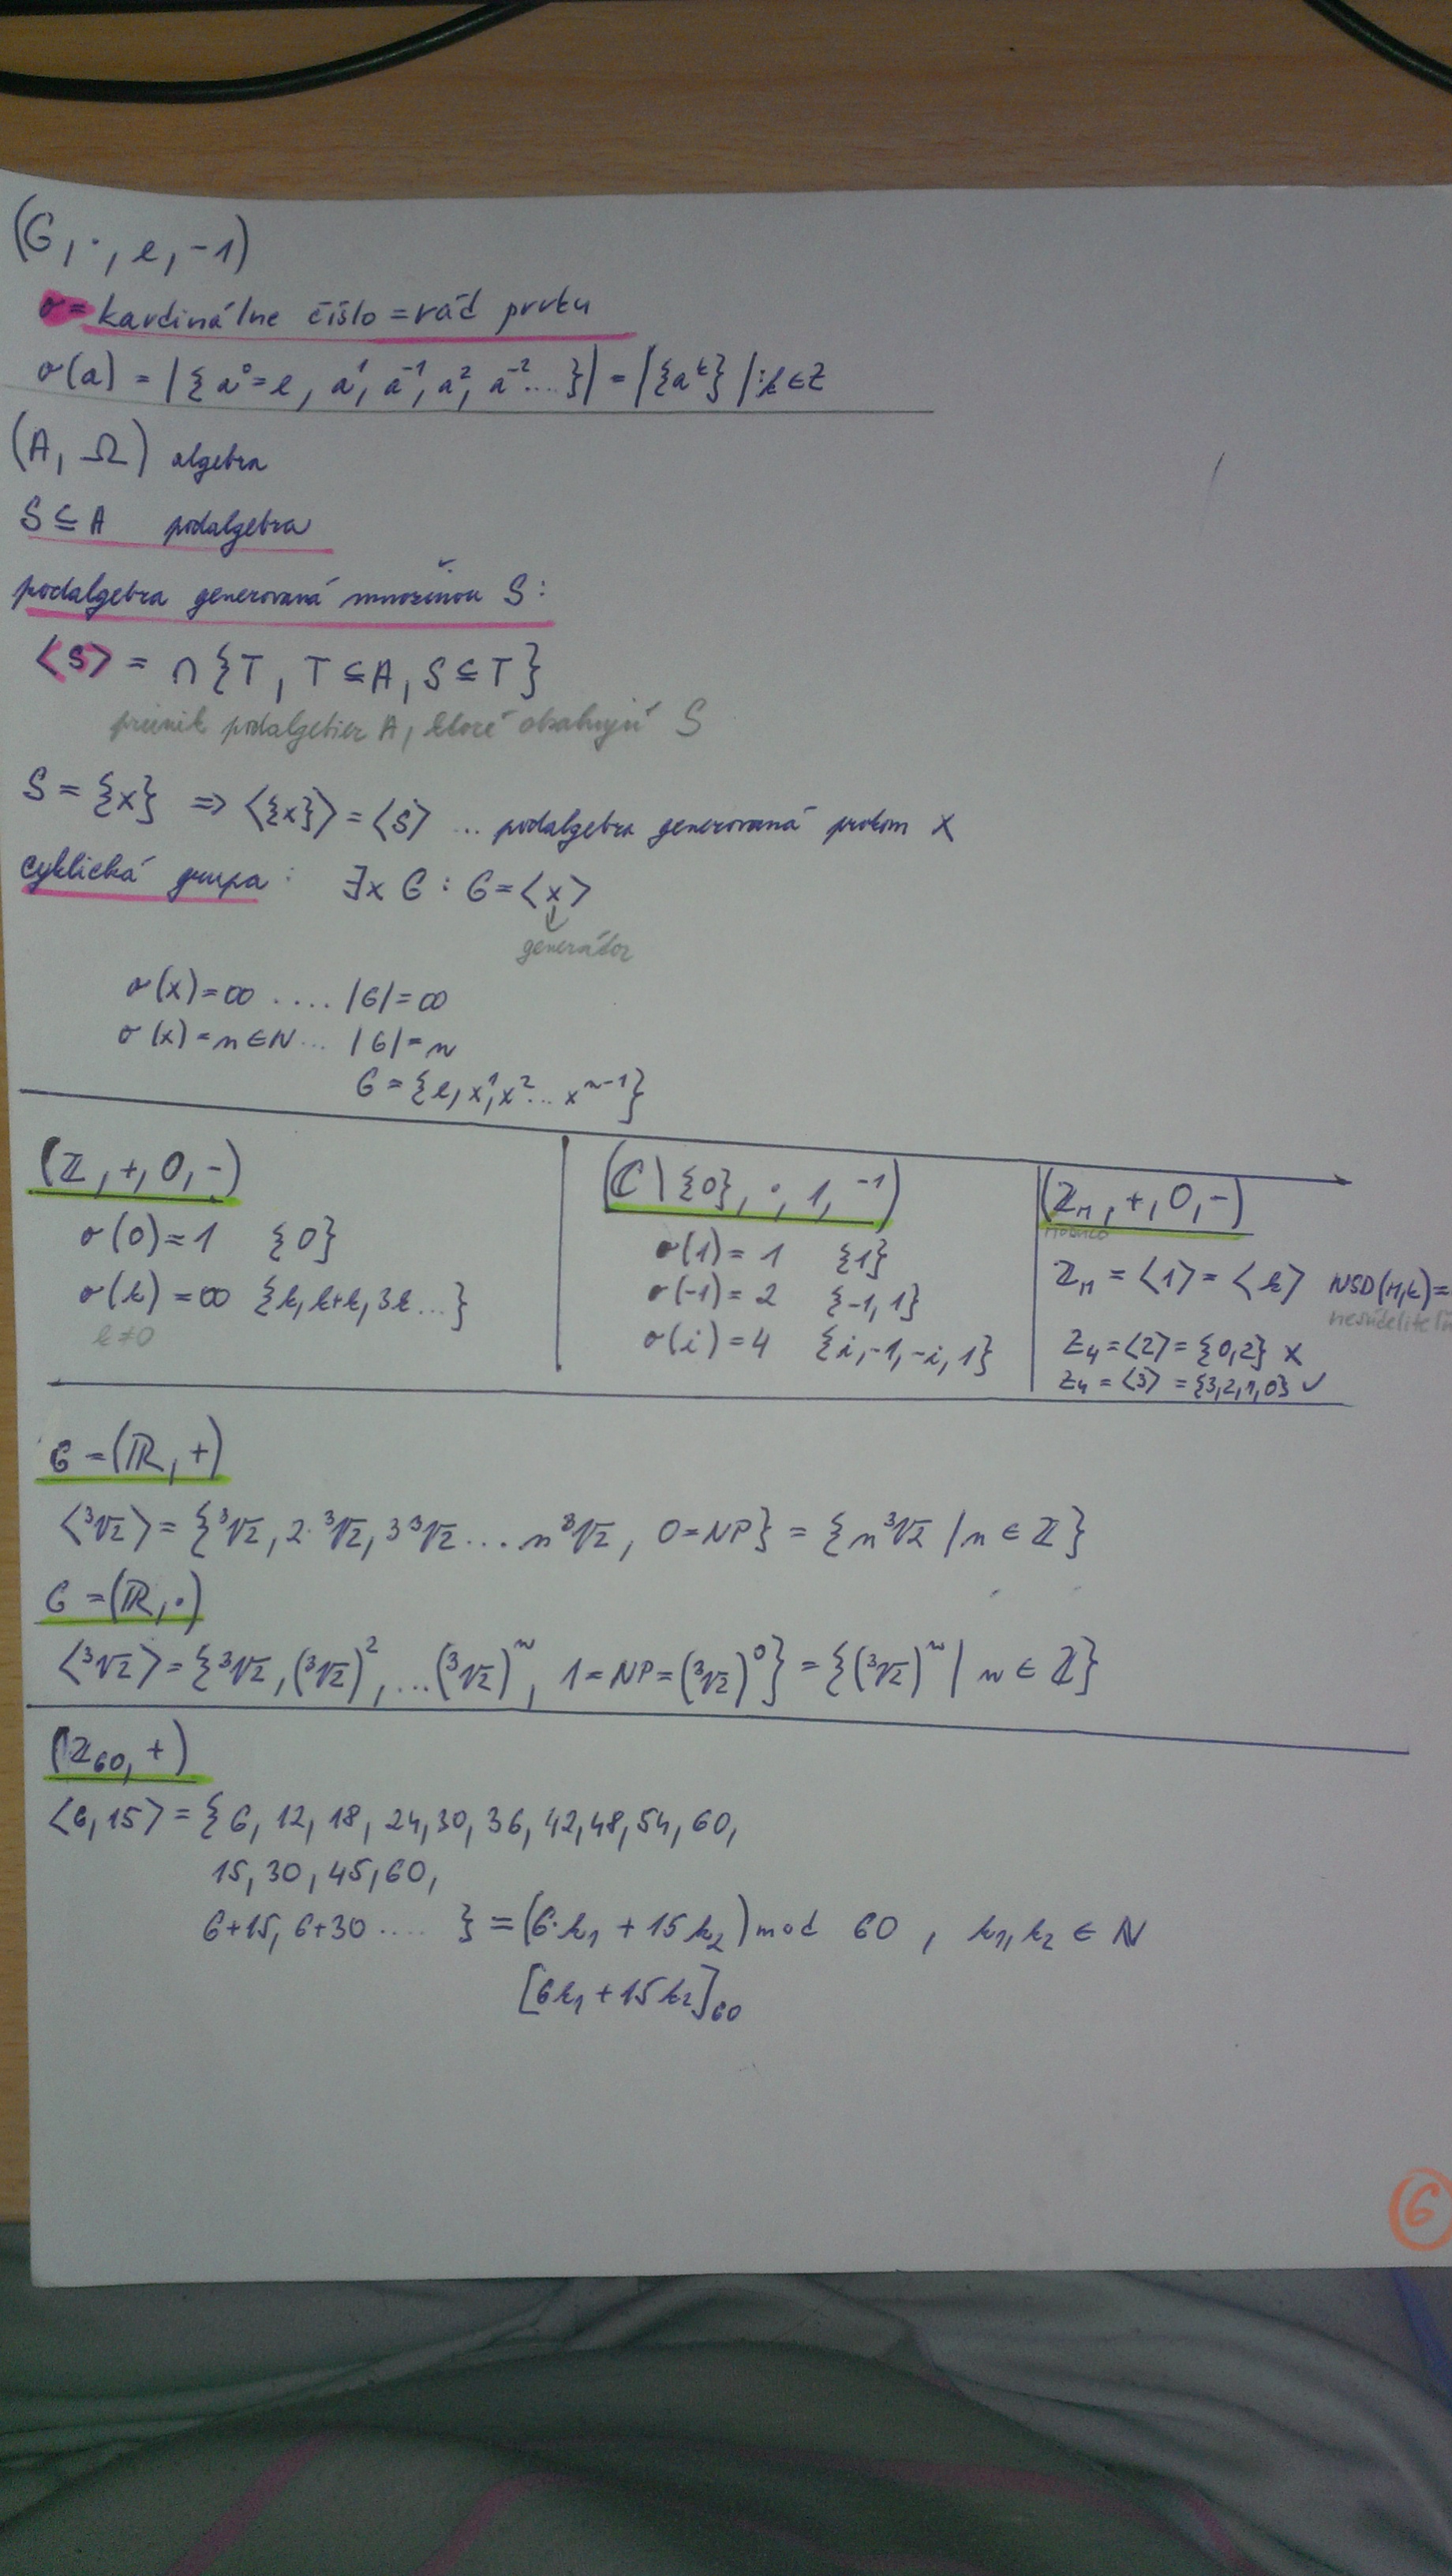 (G, ·, e, -1)
σ = kardinálne číslo = rád prvku
σ(a) = |{a⁰=e, a¹, a⁻¹, a², a⁻²...}| = |{aᵏ}|: k∈Z
(A, Ω) algebra
S ⊆ A podalgebra
podalgebra generovaná množinou S:
<S> = ∩{T, T⊆A, S⊆T}
prienik podalgebier A, ktoré obsahujú S
S = {x} ⇒ <{x}> = <S> ... podalgebra generovaná prvkom X
cyklická grupa: ∃x G : G = <x>
generátor
σ(x) = ∞ .... |G| = ∞
σ(x) = n ∈ N ... |G| = n
G = {e, x¹, x² ... xⁿ⁻¹}
(ℤ, +, 0, -)
σ(0) = 1 {0}
σ(k) = ∞ {k, k+k, 3k ...}
k ≠ 0
(ℂ \ {0}, ·, 1, ⁻¹)
σ(1) = 1 {1}
σ(-1) = 2 {-1, 1}
σ(i) = 4 {i, -1, -i, 1}
(ℤₙ, +, 0, -)
ℤₙ = <1> = <k> NSD(n,k) =
Z₄ = <2> = {0,2} X
Z₄ = <3> = {3,2,1,0} ✓
G = (ℝ, +)
<³√2> = {³√2, 2·³√2, 3³√2 ... n³√2, 0=NP} = {n³√2 / n ∈ ℤ}
G = (ℝ, ·)
<³√2> = {³√2, (³√2)², ... (³√2)ⁿ, 1=NP=(³√2)⁰} = {(³√2)ⁿ | n ∈ ℤ}
(ℤ₆₀, +)
<6,15> = {6, 12, 18, 24, 30, 36, 42, 48, 54, 60,
15, 30, 45, 60,
6+15, 6+30 .... } = (6·k₁ + 15k₂) mod 60 , k₁, k₂ ∈ ℕ
[6k₁ + 15k₂]₆₀
6